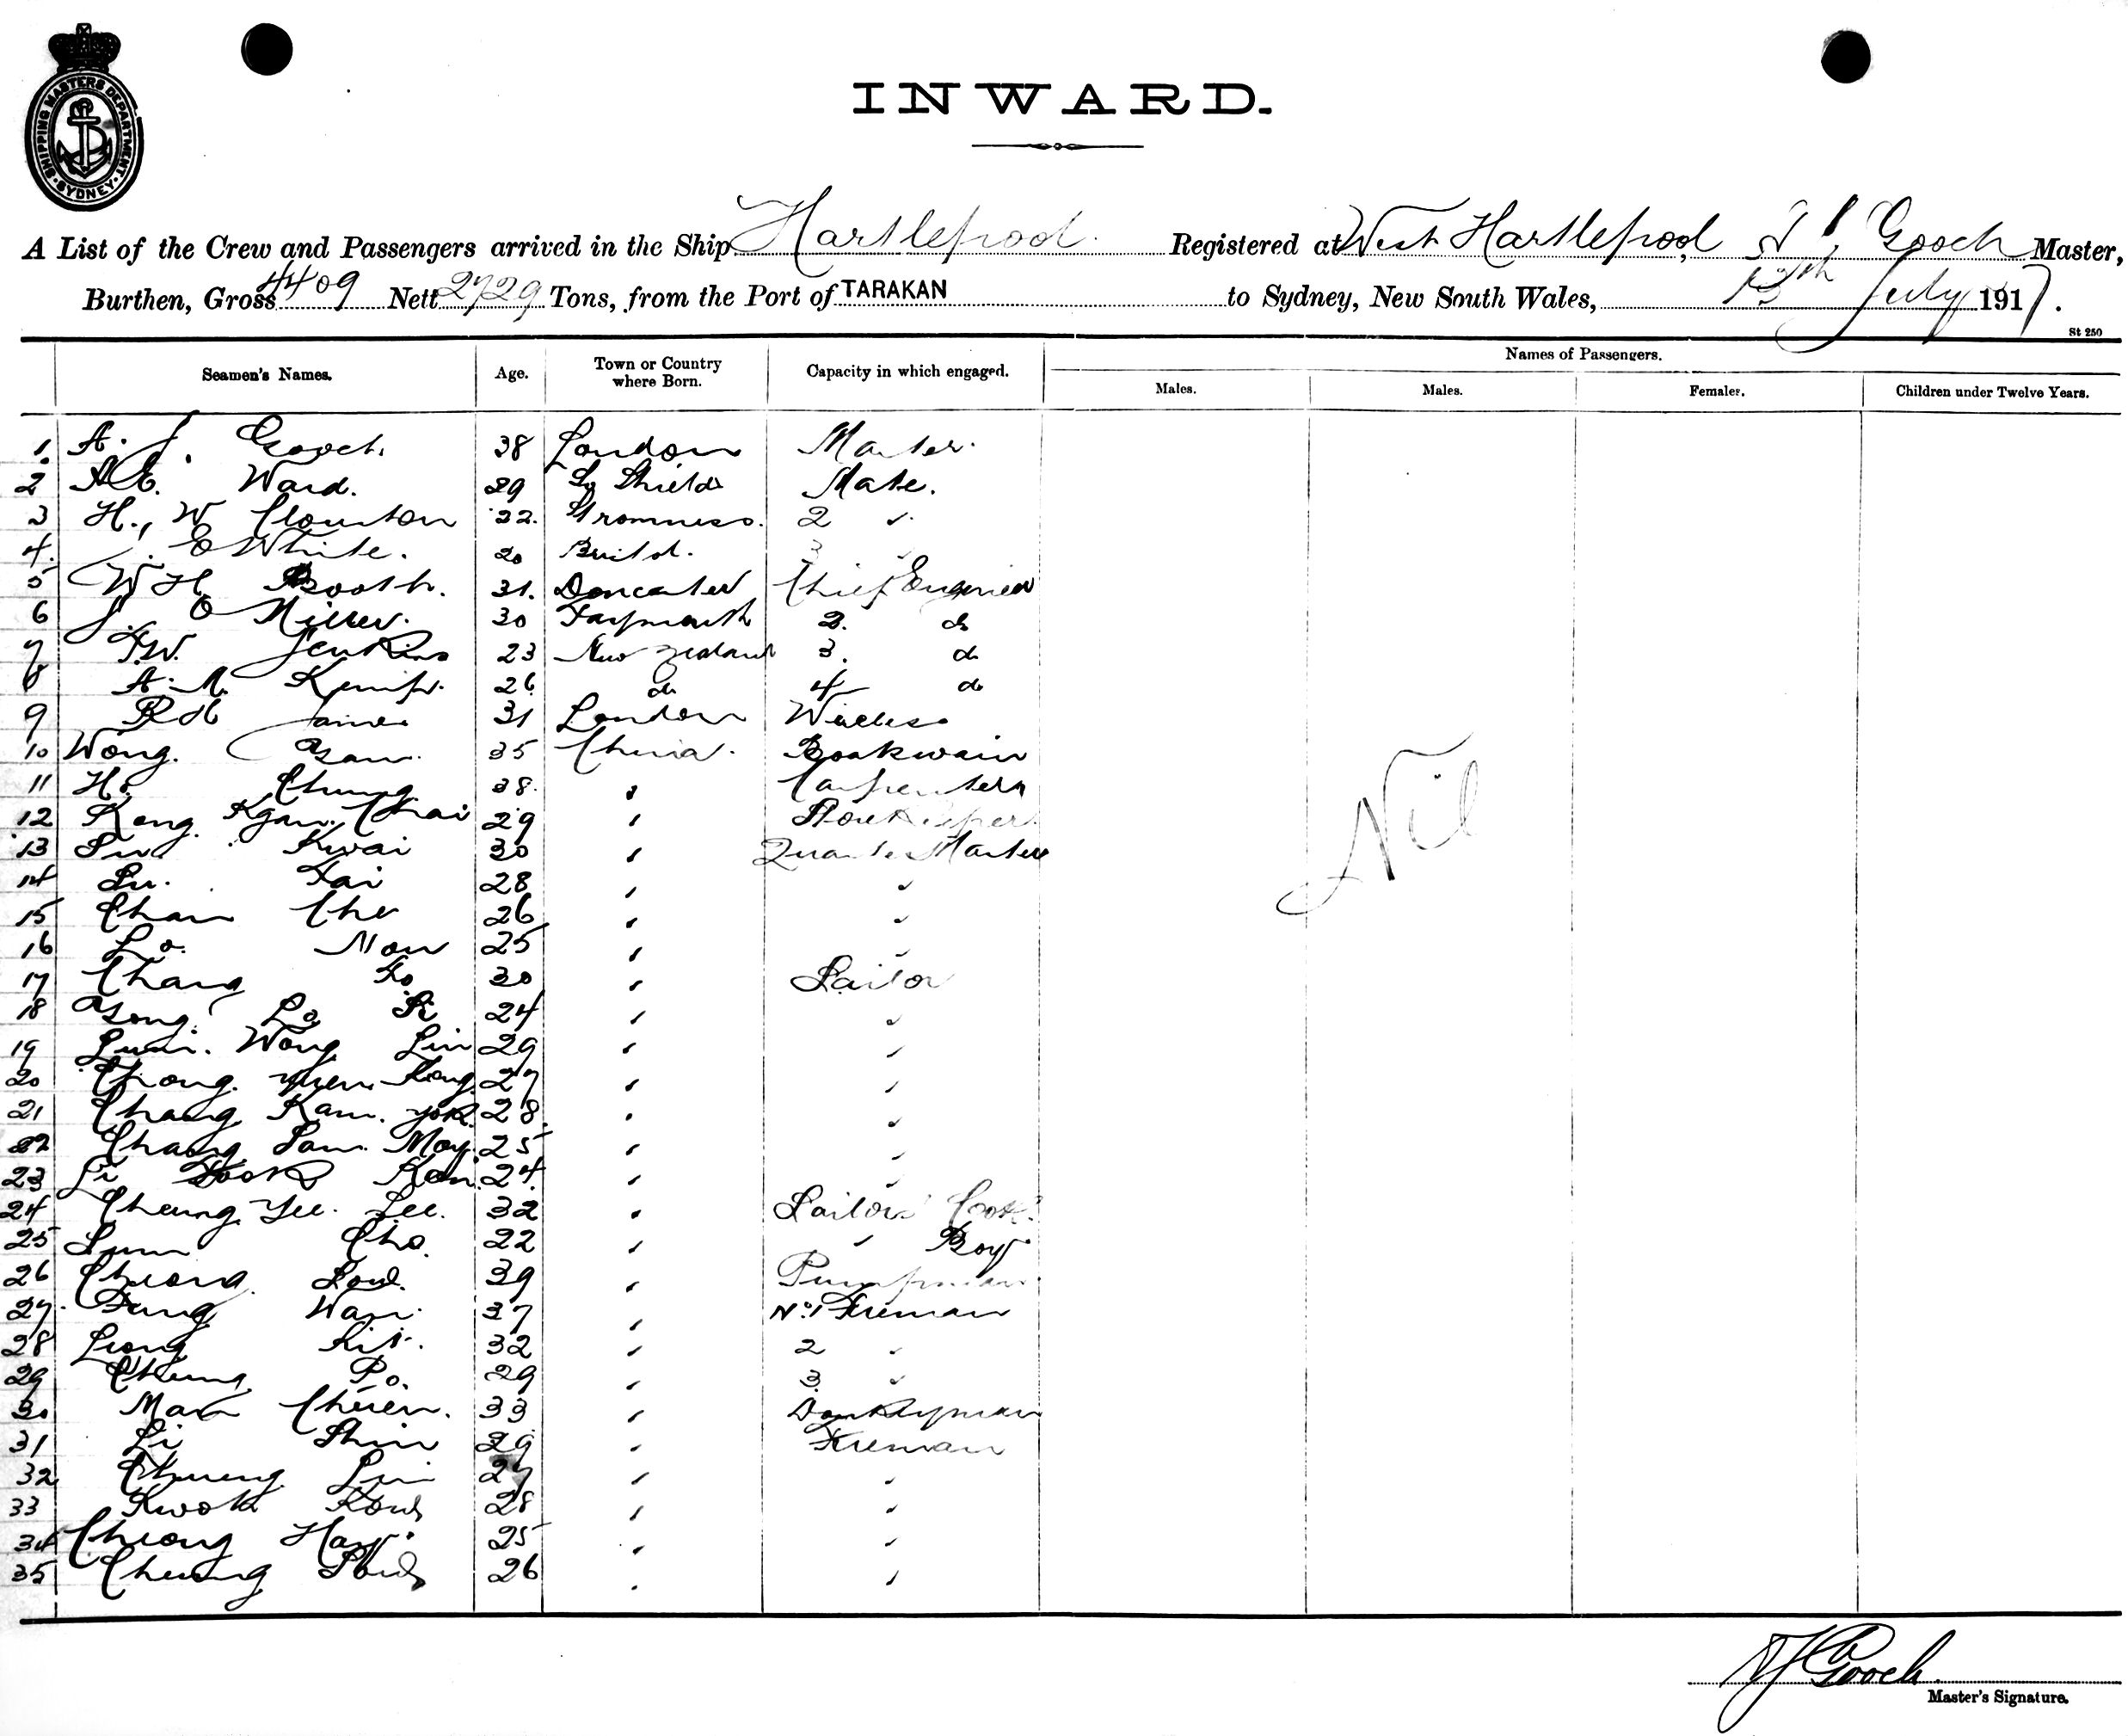 SHIPPING MASTERS DEPARTMENT SYDNEY
INWARD.
A List of the Crew and Passengers arrived in the Ship Hartlepool Registered at West Hartlepool, A J Gooch Master,
Burthen, Gross 4409 Nett 2729 Tons, from the Port of TARAKAN to Sydney, New South Wales, July 1917.
St 250
Seamen's Names. Age. Town or Country where Born. Capacity in which engaged. Names of Passengers.
Males. Males. Females. Children under Twelve Years.
1. A. J. Gooch. 38 London Master.
2 A E. Ward. 29 So Shields Mate.
3 H., W Clouston 22. Stromness. 2 "
4. E White. 20 Bristol. 3 "
5 W H Booth. 31. Doncaster Chief Engineer
6 J. O Miller. 30 2. do
7 F.W. Jenkins 23 New Zealand 3. do
8 A. M. Kemp. 26 do 4 do
9 R H James 31 London Wireless
10 Wong. 35 China. Boatswain
11 Ho Chung 38. " Carpenter
12 Kong. Chai 29 " Storekeeper
13 Kwai 30 " Quarter Master
14 Tai 28 " "
15 Chan Che 26 " "
16 Lo. Mow 25 " "
17 Chang 30 " Sailor
18 Lo 24 " "
19 Lum. Wong Lin 29 " "
20 Chong. Yuen Kong 27 " "
21 Chang Kam. Yok. 28. " "
22 Chang Sam. Moy. 25 " "
23 Li Kan. 24. " "
24 Cheung Yee. Lee. 32 " Sailors' Cook.
25 Lum Cho. 22 " " Boy
26 Cheong. 39 " Pumpman
27. Wan. 37 " No.1 Fireman
28 Leong 32 " 2 "
29 Cheung Po. 29 " 3. "
30 Man Chuen. 33 " Donkeyman
31 Li Shin 29 " Fireman
32 Cheung 27 " "
33 Kwok 28 " "
34 Cheong Hay. 25 " "
35 Cheung 26 " "
Nil
A J Gooch.
Master's Signature.